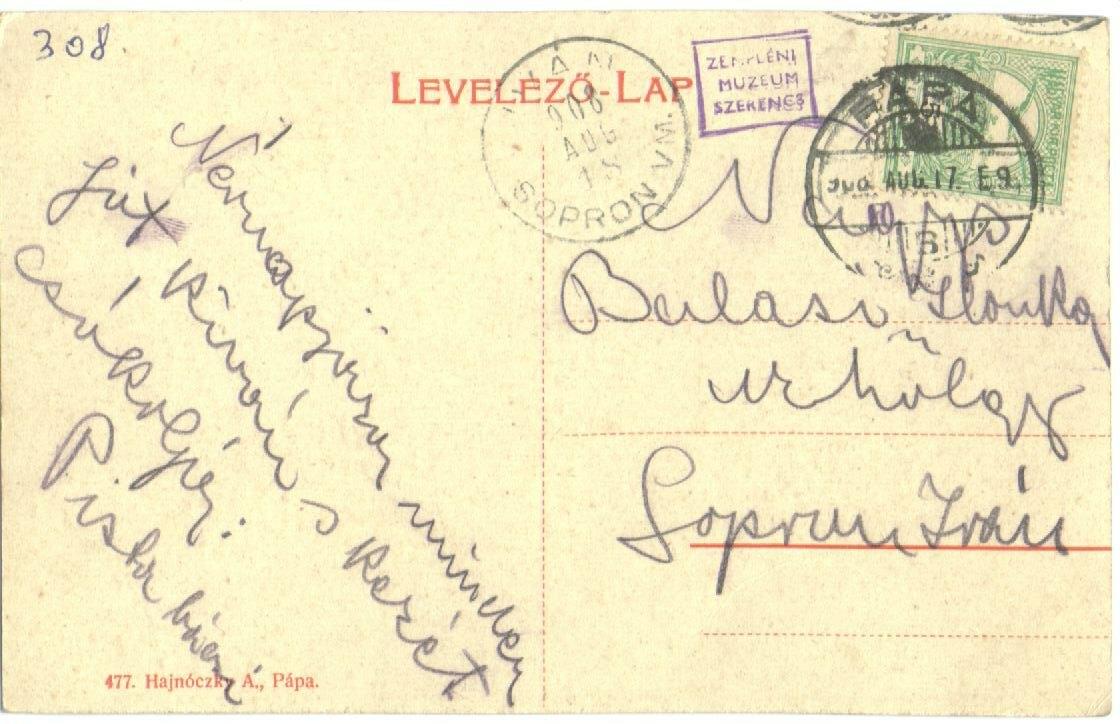 308.
LEVELEZŐ-LAP
ZEMPLÉNI
MUZEUM
SZERENCS
IVÁN
908
AUG
18
SOPRON VM.
PÁPA
AUG. 17. E.9
Névnapjára minden
jót kíván s kezét
csókolja:
Pista bácsi
Balasi Ilonka
úrhölgy
Sopron Iván
477. Hajnóczky Á., Pápa.